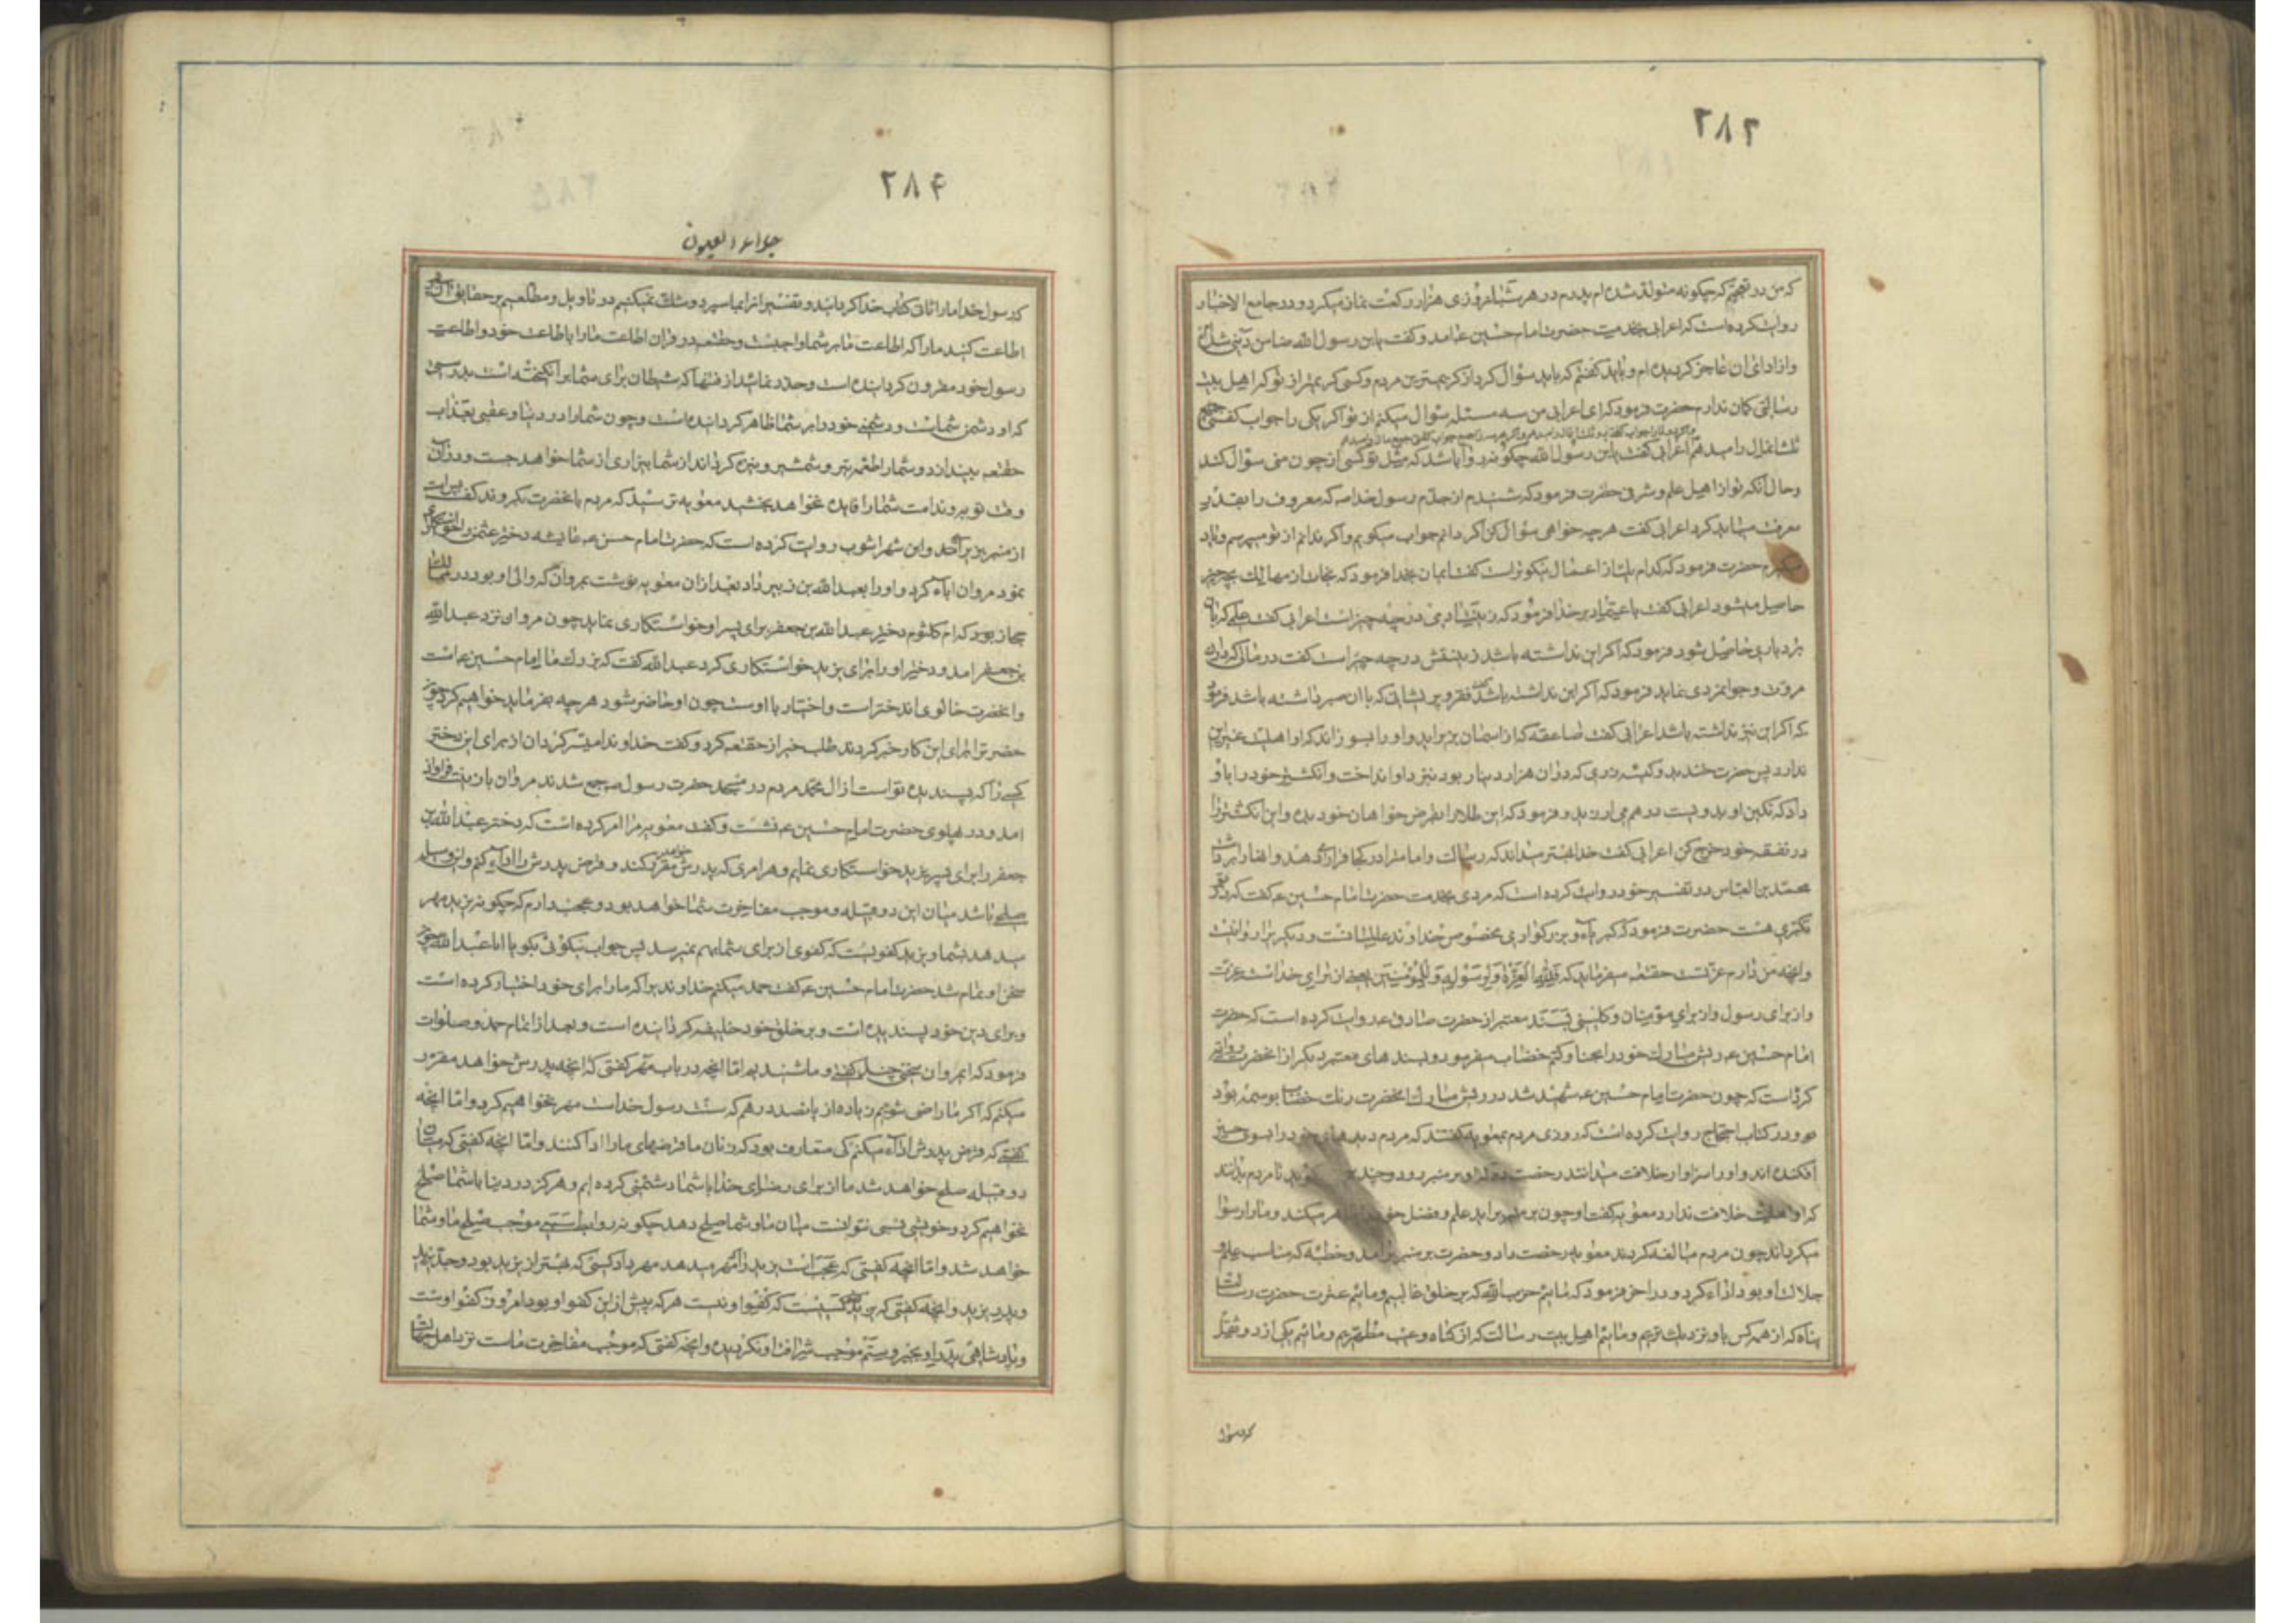 ۲۸۳
که من در تعجبم که چگونه متولد شده‌ام پدرم در هر شبانه‌روزی هزار رکعت نماز میکرد و در جامع الاخبار
روایت کرده است که اعرابی بخدمت حضرت امام حسین ع امد و گفت یابن رسول الله ضامن دیتی شده‌ام
و از ادای ان عاجز کردیده‌ام و باید کفتم که باید سؤال کرد از کریمترین مردم و کسی کریمتر از تو که اهل بیت
رسالتی کمان ندارم حضرت فرمود که ای اعرابی من سه مسئله سؤال میکنم از تو اکر یکی را جواب کفتی
ثلث انمال را میدهم اعرابی کفت یابن رسول الله چگونه روا باشد که مثل تو کسی از چون منی سؤال کند
و حال آنکه تو از اهل علم و شرفی حضرت فرمود که شنیدم از جدم رسول خدا صه که معروف را بقدر
معرفت میباید کرد اعرابی کفت هرچه خواهی سؤال کن اکر دانم جواب میکویم و اکر ندانم از تو میپرسم و یاد
میکیرم حضرت فرمود که کدام یک از اعمال نیکوتر است کفت ایمان بخدا فرمود که نجات از مهالک بچه چیز
حاصل میشود اعرابی کفت باعتماد بر خدا فرمود که زینت ادمی در چه چیز است اعرابی کفت علمی که با ان
بردباری حاصل شود فرمود که اکر این نداشته باشد زینتش در چه چیز است کفت در مالی که با ان
مروت و جوانمردی نماید فرمود که اکر این نداشته باشد کفت فقر و پریشانی که با ان صبر داشته باشد فرمود
که اکر این نیز نداشته باشد اعرابی کفت صاعقه که از اسمان بزیر اید و او را بسوزاند که او اهلیت غیر این
ندارد پس حضرت خندید و کیسه زری که در ان هزار دینار بود نیز د او انداخت و انکشتر خود را باو
داد که نکین او بدویست درهم می ارزید و فرمود که این طلاها را بقرض خواهان خود بده و این انکشتر را
در نفقه خود خرج کن اعرابی کفت خدا بهتر میداند که رسالت و امامت را در کجا قرار دهد و انها را برداشت
محمد بن العباس در تفسیر خود روایت کرده است که مردی بخدمت حضرت امام حسین ع کفت که در تو
تکبری هست حضرت فرمود که کبریاء و بزرکواری مخصوص خداوند عالمیانست و دیکریرا روا نیست
و انچه من دارم عزتست حقتعه میفرماید که فلله العزة و لرسوله و للمؤمنین یعنی از برای خداست عزت
و از برای رسول و از برای مؤمنان و کلینی بسند معتبر از حضرت صادق ع روایت کرده است که حضرت
امام حسین ع ریش مبارک خود را بحنا و کتم خضاب میفرمود و بسندهای معتبر دیکر از انحضرت روایت
کرده است که چون حضرت امام حسین ع شهید شد در ریش مبارک انحضرت رنک خضاب بوسمه بود
و در کتاب احتجاج روایت کرده است که روزی مردم بمعویه کفتند که مردم دیدهای خود را بسوی حسین
افکنده‌اند و او را سزاوار خلافت میدانند رخصت ده که او بر منبر رود و چند بکوید تا مردم بدانند
که او اهلیت خلافت ندارد معویه کفت او چون بر منبر براید علم و فضل خود ظاهر میکند و ما را رسوا
میکرداند چون مردم مبالغه کردند معویه رخصت داد و حضرت بر منبر برامد و خطبه که مناسب علم و
جلالت او بود اداء کرد و در اخر فرمود که مائیم حزب الله که بر خلق غالبیم و مائیم عترت حضرت رسالت
پناه که از همه کس باو نزدیک تریم و مائیم اهل بیت رسالت که از کناه و عیب مطهریم و مائیم یکی از دو ثقل
که رسول
۲۸۴
جلاء العیون
که رسول خدا ما را ثانی کتاب خدا کردانید و تفسیر انرا بما سپرد و شک نمیکنیم در تاویل و مطلعیم بر حقایق ان پس
اطاعت کنید ما را که اطاعت ما بر شما واجبست و حقتعه در قران اطاعت ما را باطاعت خود و اطاعت
رسول خود مقرون کردانیده است و حذر نمائید از فتنها که شیطان برای شما برانکیخته است بدرستی
که او دشمن شماست و دشمنی خود را بر شما ظاهر کردانیده است و چون شما را در دنیا و عقبی بعذاب
حقتعه بیندازد و شما را طعمه تیر و شمشیر و نیزه کرداند از شما بیزاری از شما خواهد جست و در ان
وقت توبه و ندامت شما را فایده نخواهد بخشید معویه ترسید که مردم بانحضرت بکروند کفت
از منبر بزیر آمد و ابن شهراشوب روایت کرده است که حضرت امام حسن ع عایشه دختر عثمن را خواستکاری
نمود مروان اباء کرد و او را بعبدالله بن زبیر داد بعد از ان معویه نوشت بمروان که والی او بود در
حجاز بود که ام کلثوم دختر عبدالله بن جعفر برای پسر او خواستکاری نماید چون مروان نزد عبدالله
بن جعفر امد و دختر او را برای یزید خواستکاری کرد عبدالله کفت که بزرک ما امام حسین ع است
و انحضرت خالوی اند ختر است و اختیار با اوست چون او حاضر شود هرچه بفرماید خواهیم کرد چون
حضرترا برای این کار خبر کردند طلب خیر از حقتعه کرد و کفت خداوندا میسر کردان از برای این دختر
کسی را که پسندیده تو است از ال محمد مردم در مسجد حضرت رسول ص جمع شدند مروان بان
امد و در پهلوی حضرت امام حسین ع نشست و کفت معویه مرا امر کرده است که دختر عبدالله بن
جعفر را برای پسر یزید خواستکاری نمایم و هر امری که پدرش مقرر کند و قرض پدرش را اداء کنم و این وسیله
صلح باشد میان این دو قبیله و موجب مفاخرت شما خواهد بود و عجب دارم که چگونه یزید مهر
میدهد بشما و یزید کفویست که کفوی از برای شما بهم نمیرسد پس جواب نیکوئی بکو یا ابا عبدالله چون
سخن او تمام شد حضرت امام حسین ع کفت حمد میکنم خداوندیرا که ما را برای خود اختیار کرده است
و برای دین خود پسندیده است و بر خلق خود خلیفه کردانیده است و بعد از اتمام حمد و صلوات
فرمود که ایمروان سخنی چند کفتی و ما شنیدیم اما انچه در باب مهر کفتی که انچه پدرش خواهد مقرر
میکنم که اکر ما راضی شویم زیاده از پانصد درهم که سنت رسول خداست مهر نخواهیم کرد و اما انچه
کفتی که قرض پدرش اداء میکنم کی متعارف بود که زنان ما قرضهای ما را ادا کنند و اما انچه کفتی که میان
دو قبیله صلح خواهد شد ما از برای رضای خدا با شما دشمنی کرده‌ایم و هرکز در دنیا با شما صلح
نخواهیم کرد و خویشی نسبی نتوانست میان ما و شما صلح دهد چگونه روابط سببی موجب صلح ما و شما
خواهد شد و اما انچه کفتی که عجب است یزید را مهر میدهد مهر داد کسی که بهتر از یزید بود و جد یزید
و پدر یزید و انچه کفتی که یزید کسیست که کفو او نیست هرکه پیش از این کفو او بود امروز کفو اوست
و پادشاهی پدر او بجبر و ستم موجب شرافت او نکردیده و انچه کفتی که موجب مفاخرت ماست نزد اهل جهالت